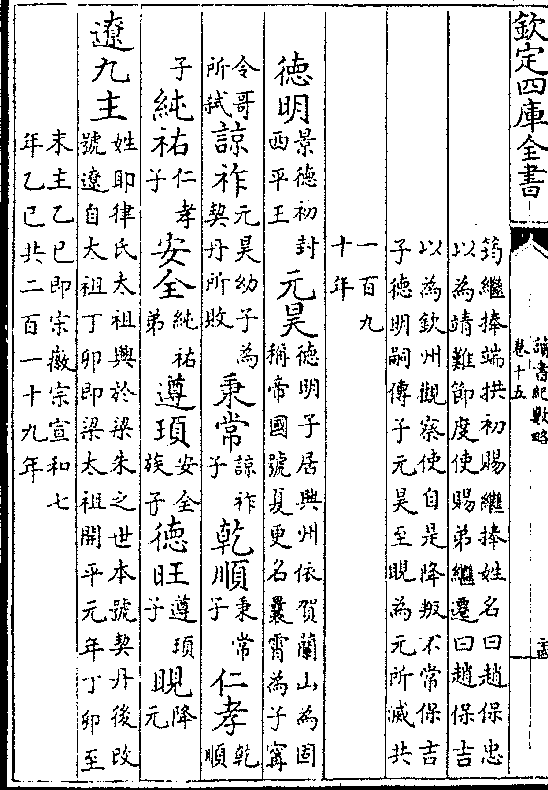 欽定四庫全書
讀書紀數略
卷十五
筠繼捧端拱初賜繼捧姓名曰趙保忠
以為靖難節度使賜弟繼遷曰趙保吉
以為欽州觀察使自是降叛不常保吉
子德明嗣傳子元昊至晛為元所滅共
一百九
十年
德明景德初封西平王元昊德明子居興州依賀蘭山為固稱帝國號夏更名曩霄為子寗
令哥所弒諒祚元昊幼子為契丹所敗秉常諒祚子乾順秉常子仁孝乾順
子純祐仁孝子安全純祐弟遵頊安全族子德旺遵頊子晛降元
遼九主姓耶律氏太祖興於梁朱之世本號契丹後改號遼自太祖丁卯即梁太祖開平元年丁卯至
末主乙巳即宗徽宗宣和七年乙巳共二百一十九年